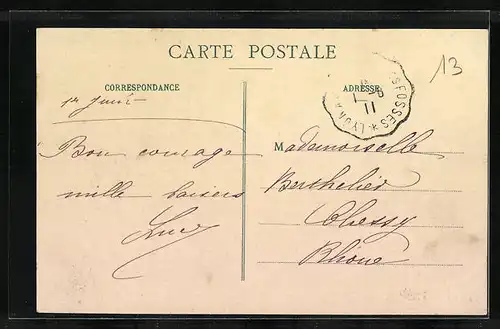 CARTE POSTALE
CORRESPONDANCE
ADRESSE
13
SFOSSES * LYON
11
1er Juin
Bon courage
mille baisers
Luc
Mademoiselle
Berthelier
Chessy
Rhône